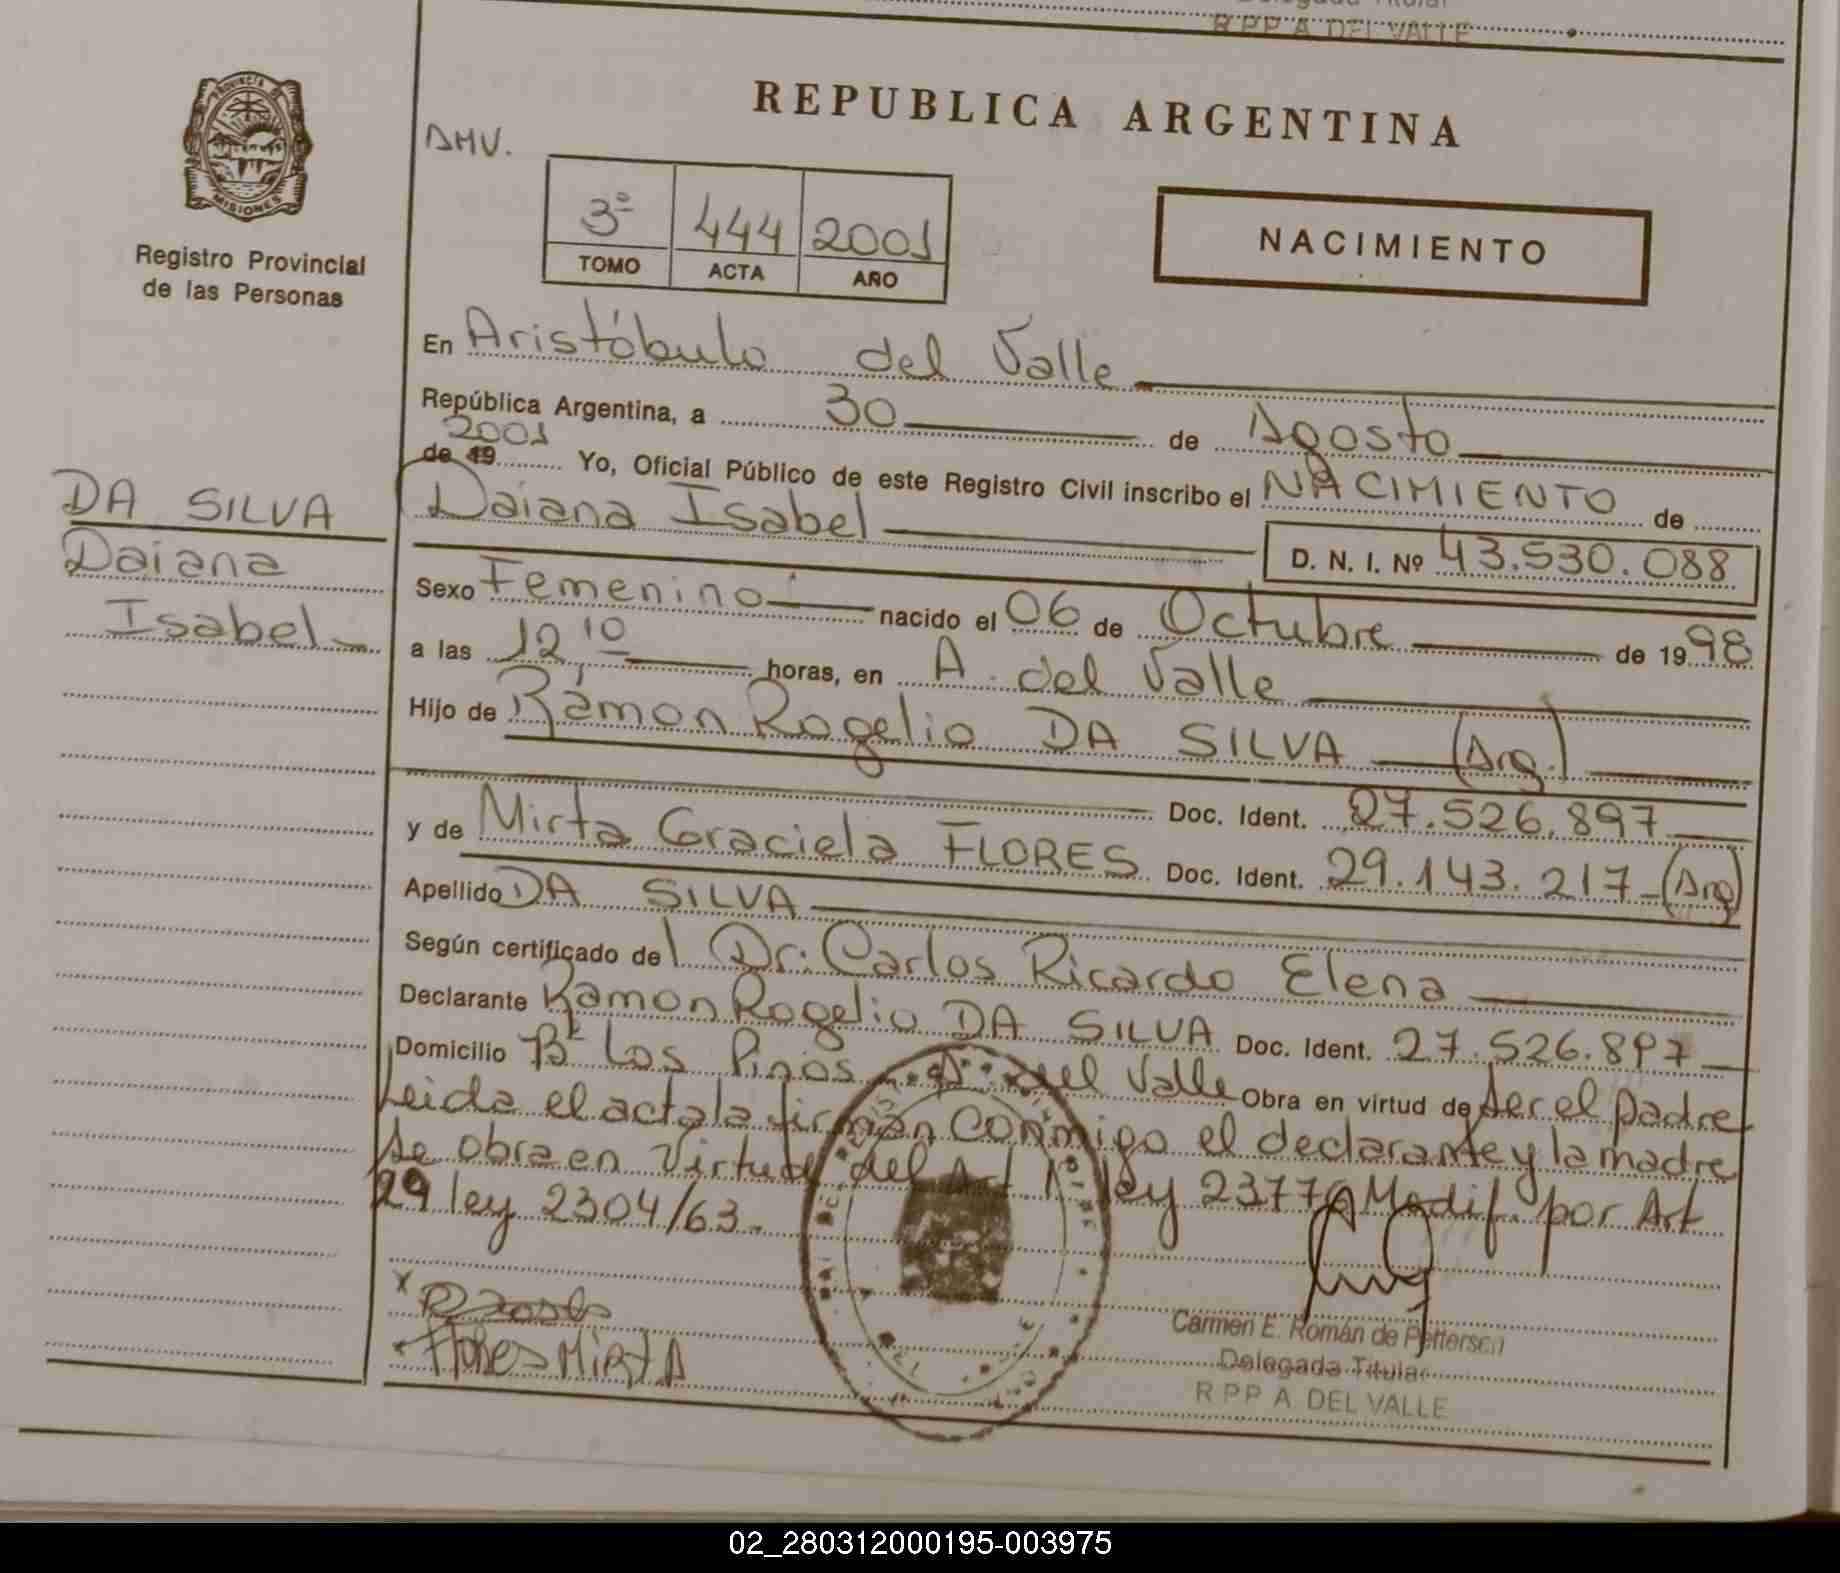 R P P A DEL VALLE
PROVINCIA DE
MISIONES
Registro Provincial
de las Personas
REPUBLICA ARGENTINA
DMV.
3º 444 2001
TOMO ACTA AÑO
NACIMIENTO
En Aristóbulo del Valle
República Argentina, a 30 de Agosto
2001
de 19 Yo, Oficial Público de este Registro Civil inscribo el NACIMIENTO de
Daiana Isabel
D. N. I. Nº 43.530.088
DA SILVA
Daiana
Isabel
Sexo Femenino nacido el 06 de Octubre de 1998
a las 12,10 horas, en A. del Valle
Hijo de Ramon Rogelio DA SILVA (Arg.)
Doc. Ident. 27.526.897
y de Mirta Graciela FLORES Doc. Ident. 29.143.217 (Arg)
Apellido DA SILVA
Según certificado del Dr. Carlos Ricardo Elena
Declarante Ramon Rogelio DA SILVA Doc. Ident. 27.526.897
Domicilio Bº Los Pinos A. del Valle Obra en virtud de ser el padre
Leida el acta la firman conmigo el declarante y la madre
se obra en virtud del Art 1º ley 23776 Modif. por Art
29 ley 2304/63.
Flores MiRtA
Carmen E. Román de Pettersen
Delegada Titular
R P P A DEL VALLE
02_280312000195-003975